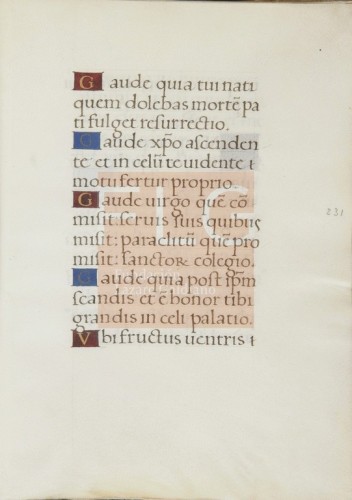 Gaude quia tui nati
quem dolebas mortē pa
ti fulget resurrectio.
Gaude xp̄o ascenden
te et in celū te uidente i
motu fertur proprio.
Gaude uirgo que cō
misit seruis suis quibus
misit: paraclitū quē pro
misit: sanctor colegio.
Gaude quia post ip̄m
scandis et ē honor tibi
grandis in celi palatio.
Vbi fructus uentris t
231
FLG
Fundación
Lázaro Galdiano